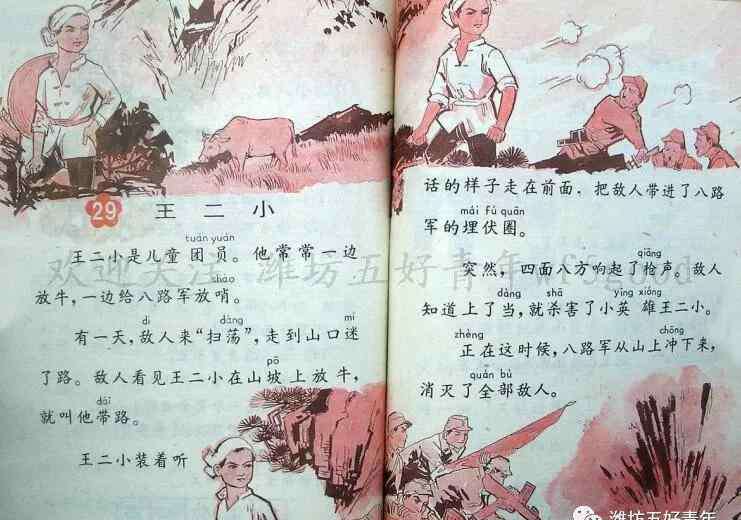 29 王二小
tuán yuán
王二小是儿童团员。他常常一边
shào
放牛，一边给八路军放哨。
dí dàng mí
有一天，敌人来“扫荡”，走到山口迷
pō
了路。敌人看见王二小在山坡上放牛，
dài
就叫他带路。
王二小装着听
话的样子走在前面，把敌人带进了八路
mái fú quān
军的埋伏圈。
qiāng
突然，四面八方响起了枪声。敌人
dàng shā yīng xióng
知道上了当，就杀害了小英雄王二小。
zhèng chōng
正在这时候，八路军从山上冲下来，
quán bù
消灭了全部敌人。
欢迎关注 潍坊五好青年wf5good
潍坊五好青年